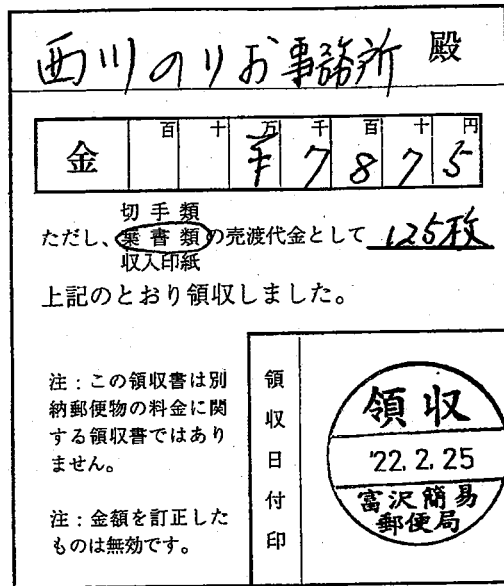 西川のりお事務所 殿
金 百 十 万 千 百 十 円
¥7875
切手類
ただし、葉書類の売渡代金として 125枚
収入印紙
上記のとおり領収しました。
注:この領収書は別
納郵便物の料金に関
する領収書ではあり
ません。
注:金額を訂正した
ものは無効です。
領収日付印
領収
'22.2.25
富沢簡易
郵便局